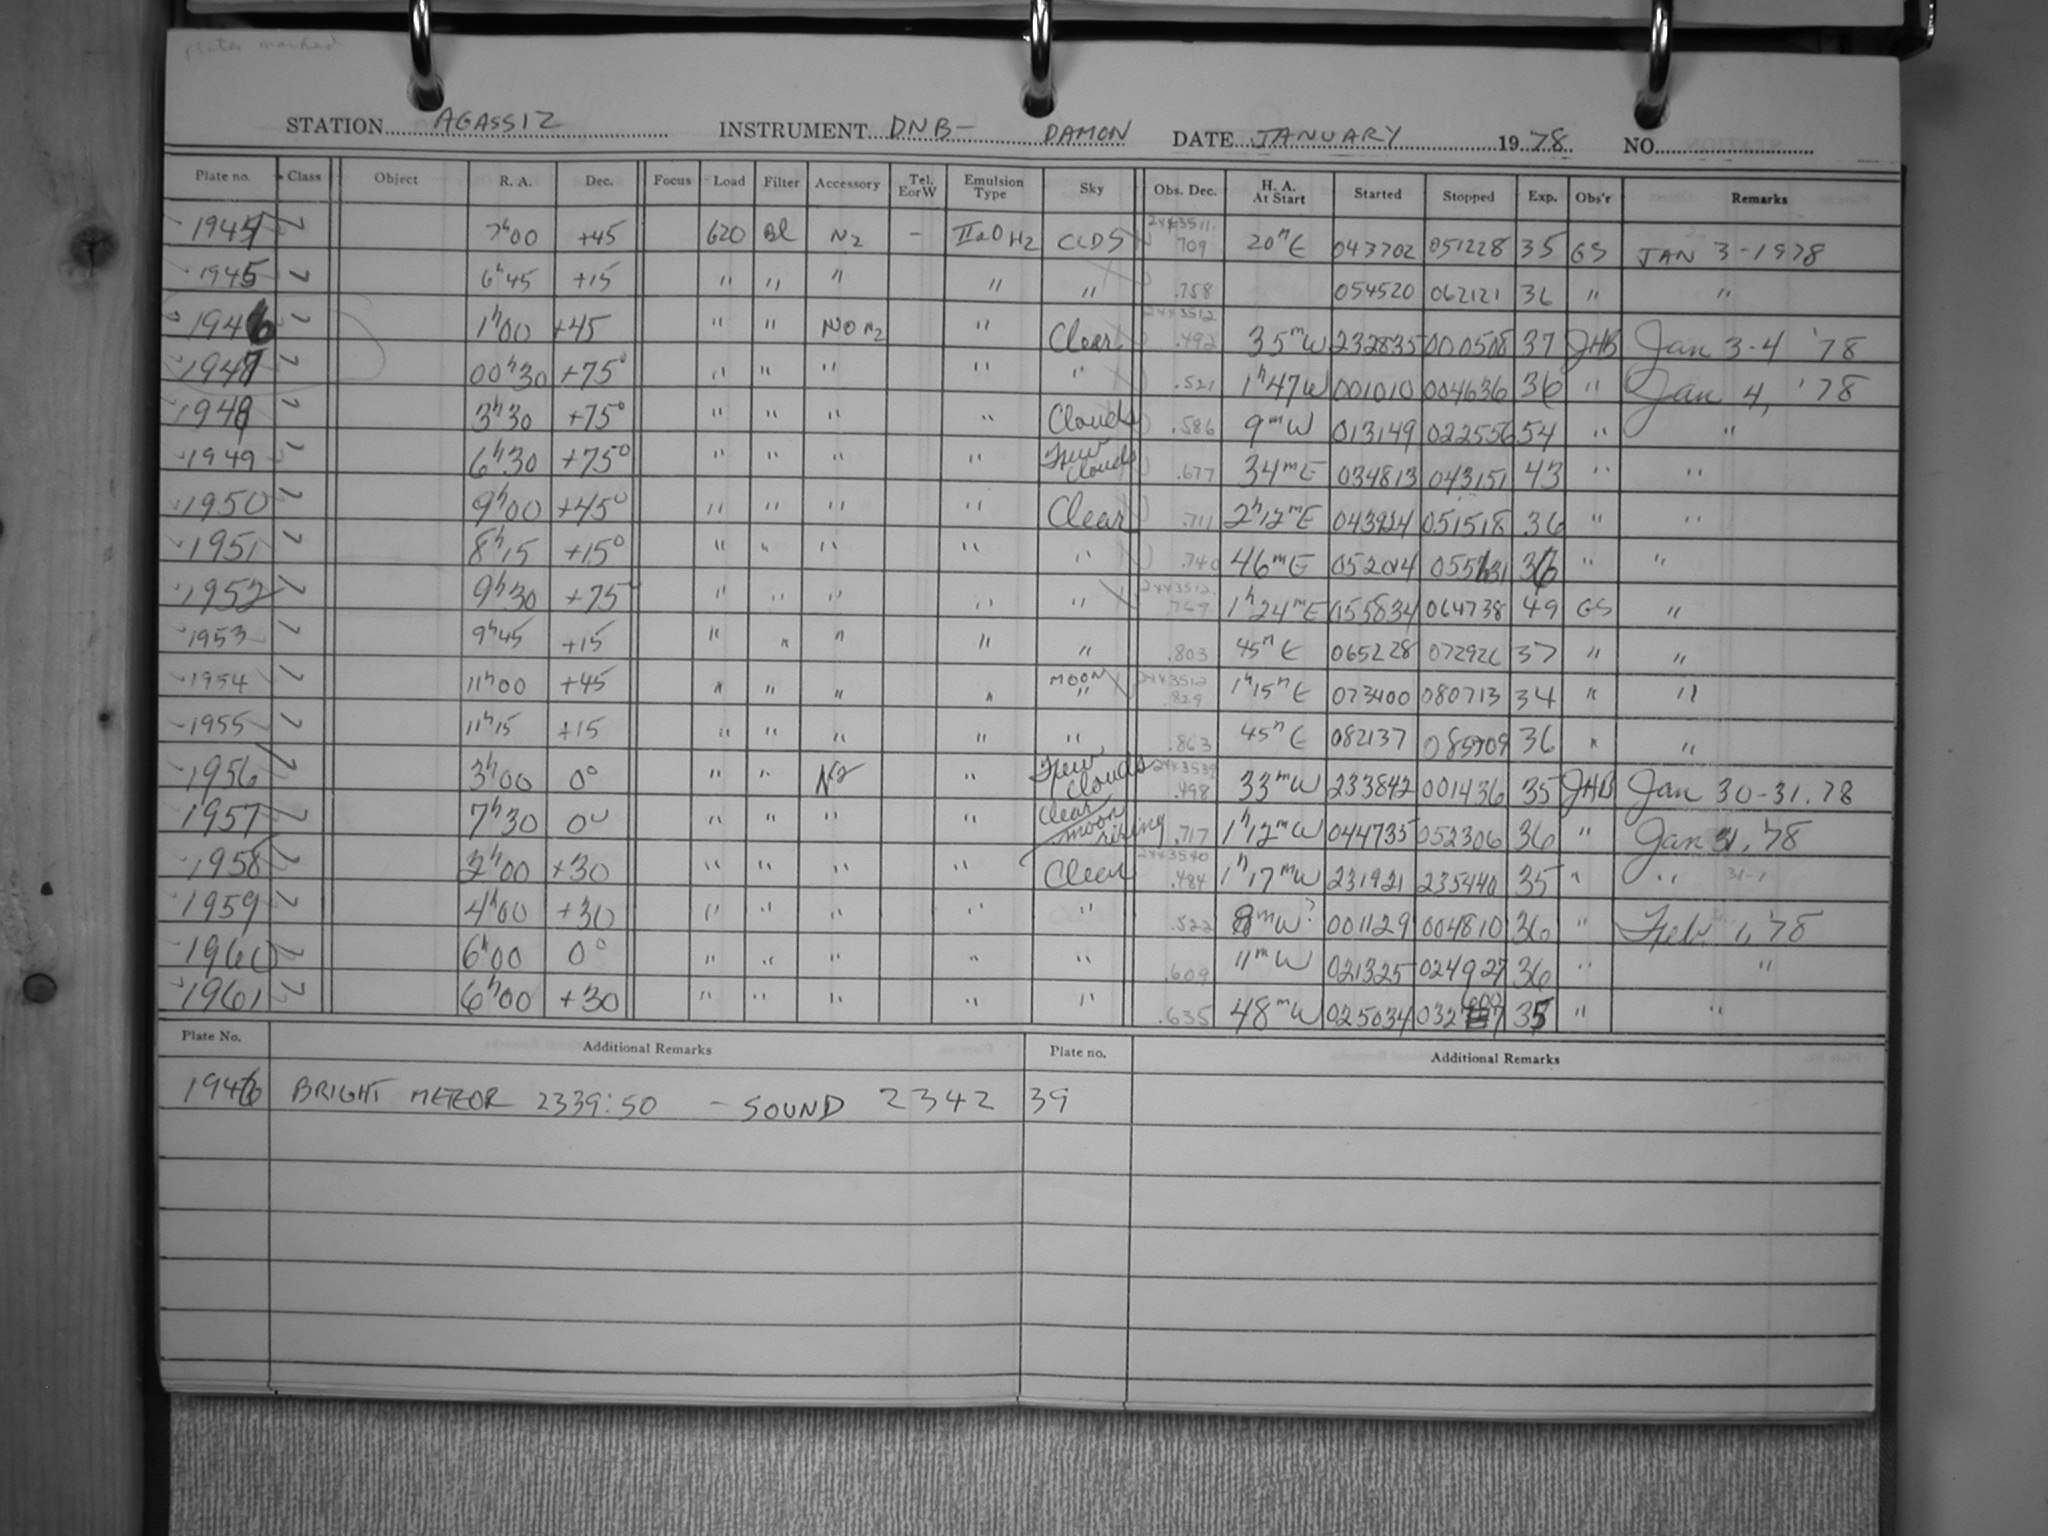 plates marked
STATION AGASSIZ INSTRUMENT DNB- DAMON DATE JANUARY 1978 NO.
Plate no. Class Object R. A. Dec. Focus Load Filter Accessory Tel. E or W Emulsion Type Sky Obs. Dec. H. A. At Start Started Stopped Exp. Obs'r Remarks
1944 7h00 +45 620 Bl N2 - IIaO H2 CLDS 2443511.709 20m E 043702 051228 35 GS JAN 3-1978
1945 6h45 +15 " " " " " .758 054520 062121 36 " "
1946 1h00 +45 " " NO N2 " Clear 2443512.492 35m W 232835 000508 37 JHB Jan 3-4 '78
1947 00h30 +75° " " " " " .521 1h47W 001010 004636 36 " Jan 4, '78
1948 3h30 +75° " " " " Clouds .586 9m W 013149 022556 54 " "
1949 6h30 +75° " " " " Few Clouds .677 34m E 034813 043151 43 " "
1950 9h00 +45° " " " " Clear .711 2h12m E 043924 051518 36 " "
1951 8h15 +15° " " " " " .740 46m E 052024 055631 36 " "
1952 9h30 +75° " " " " " 2443512.769 1h24m E 055834 064738 49 GS "
1953 9h45 +15 " " " " " .803 45m E 065228 072926 37 " "
1954 11h00 +45 " " " " MOON " 2443512.829 1h15m E 073400 080713 34 " "
1955 11h15 +15 " " " " " .863 45m E 082137 085709 36 " "
1956 3h00 0° " " N2 " Few Clouds 2443539.498 33m W 233842 001436 35 JHB Jan 30-31. 78
1957 7h30 0° " " " " Clear moon rising .717 1h12m W 044735 052306 36 " Jan 31, '78
1958 2h00 +30 " " " " Clear 2443540.484 1h17m W 231921 235440 35 " " 31-1
1959 4h00 +30 " " " " " .522 8m W? 001129 004810 36 " Feb 1, '78
1960 6h00 0° " " " " " .609 11m W 021325 024927 36 " "
1961 6h00 +30 " " " " " .635 48m W 025034 032600 35 " "
Plate No. Additional Remarks Plate no. Additional Remarks
1946 BRIGHT METEOR 2339:50 - SOUND 2342 39